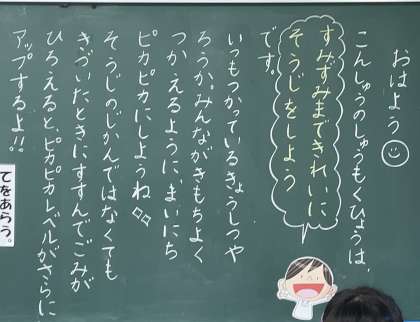 おはよう
こんしゅうのしゅうもくひょうは、
すみずみまできれいに
そうじをしよう
です。
いつもつかっているきょうしつや
ろうか。みんながきもちよく
つかえるように、まいにち
ピカピカにしようね
そうじのじかんではなくても
きづいたときにすすんでごみが
ひろえると、ピカピカレベルがさらに
アップするよ!!
てをあらう。